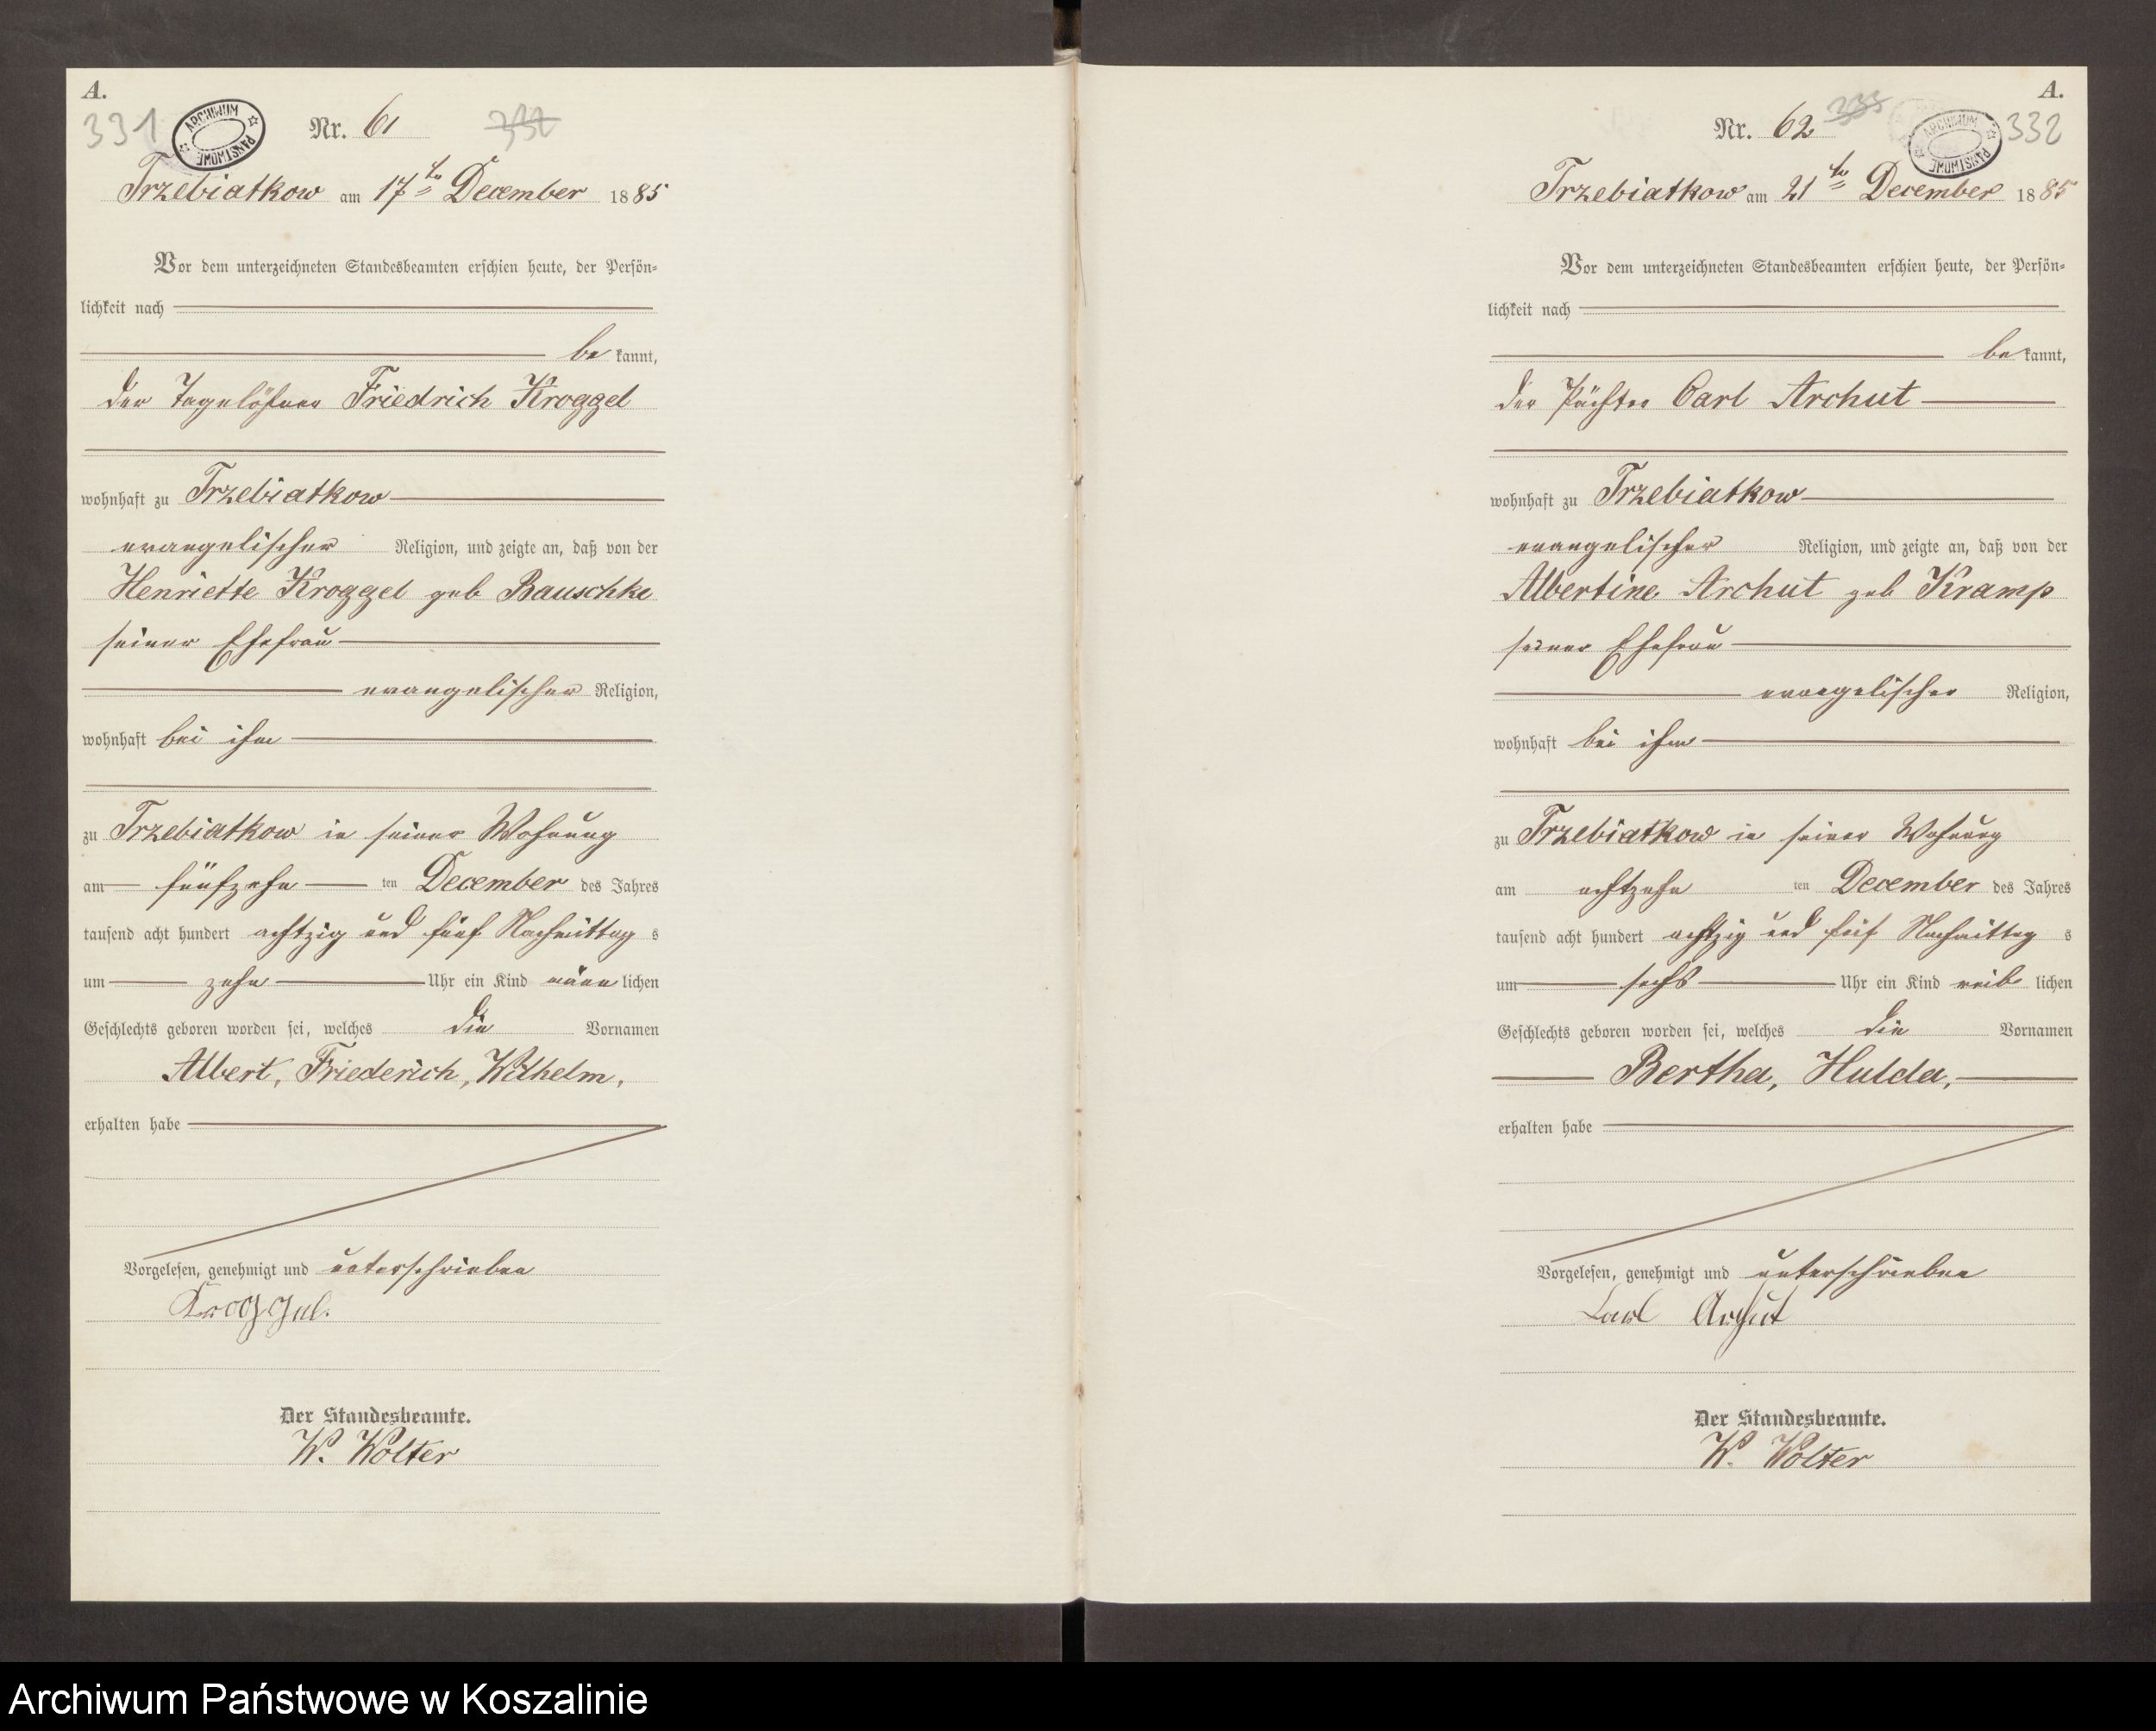 A.
331
ARCHIWUM PAŃSTWOWE
Nr. 61
332
Trzebiatkow am 17ten December 1885
Vor dem unterzeichneten Standesbeamten erschien heute, der Persön-
lichkeit nach
be kannt,
der Tagelöhner Friedrich Kroggel
wohnhaft zu Trzebiatkow
evangelischer Religion, und zeigte an, daß von der
Henriette Kroggel geb Bauschke
seiner Ehefrau
evangelischer Religion,
wohnhaft bei ihm
zu Trzebiatkow in seiner Wohnung
am fünfzehn ten December des Jahres
tausend acht hundert achtzig und fünf Nachmittag s
um zehn Uhr ein Kind männ lichen
Geschlechts geboren worden sei, welches die Vornamen
Albert, Friederich, Wilhelm,
erhalten habe
Vorgelesen, genehmigt und unterschrieben
Kroggel.
Der Standesbeamte.
W. Wolter
A.
Nr. 62
333
ARCHIWUM PAŃSTWOWE
332
Trzebiatkow am 21ten December 1885
Vor dem unterzeichneten Standesbeamten erschien heute, der Persön-
lichkeit nach
be kannt,
der Pächter Carl Archut
wohnhaft zu Trzebiatkow
evangelischer Religion, und zeigte an, daß von der
Albertine Archut geb Kramp
seiner Ehefrau
evangelischer Religion,
wohnhaft bei ihm
zu Trzebiatkow in seiner Wohnung
am achtzehn ten December des Jahres
tausend acht hundert achtzig und fünf Nachmittag s
um sechs Uhr ein Kind weib lichen
Geschlechts geboren worden sei, welches die Vornamen
Bertha, Hulda,
erhalten habe
Vorgelesen, genehmigt und unterschrieben
Carl Archut
Der Standesbeamte.
W. Wolter
Archiwum Państwowe w Koszalinie